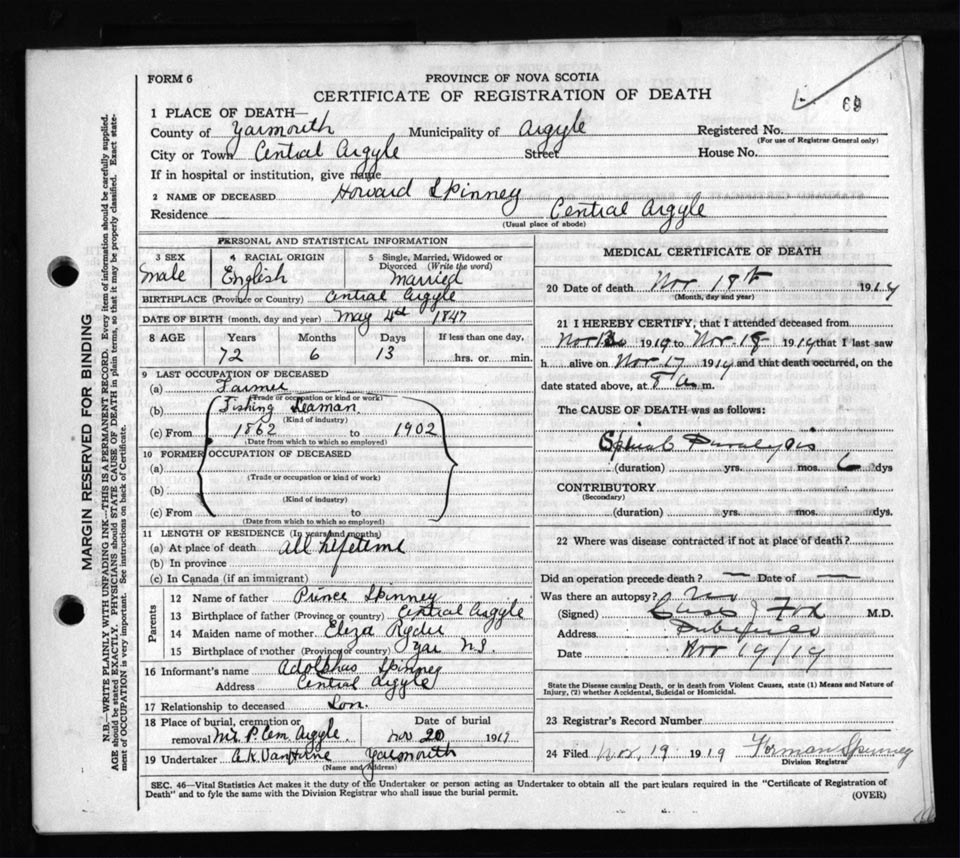 FORM 6
PROVINCE OF NOVA SCOTIA
CERTIFICATE OF REGISTRATION OF DEATH
89
1 PLACE OF DEATH—
County of Yarmouth Municipality of Argyle Registered No.
(For use of Registrar General only)
City or Town Central Argyle Street House No.
If in hospital or institution, give name
2 NAME OF DECEASED Howard Spinney
Residence Central Argyle
(Usual place of abode)
PERSONAL AND STATISTICAL INFORMATION
3 SEX Male
4 RACIAL ORIGIN English
5 Single, Married, Widowed or Divorced (Write the word) Married
BIRTHPLACE (Province or Country) Central Argyle
DATE OF BIRTH (month, day and year) May 4th 1847
8 AGE Years 72 Months 6 Days 13 If less than one day, hrs. or min.
9 LAST OCCUPATION OF DECEASED
(a) Farmer
(Trade or occupation or kind or work)
(b) Fishing Seaman
(Kind of industry)
(c) From 1862 to 1902
(Date from which to which so employed)
10 FORMER OCCUPATION OF DECEASED
(a)
(Trade or occupation or kind of work)
(b)
(Kind of industry)
(c) From to
(Date from which to which so employed)
11 LENGTH OF RESIDENCE (In years and months)
(a) At place of death All Lifetime
(b) In province
(c) In Canada (if an immigrant)
Parents
12 Name of father Prince Spinney
13 Birthplace of father (Province or country) Central Argyle
14 Maiden name of mother Eliza Ryder
15 Birthplace of mother (Province or country) Yar N.S.
16 Informant's name Adolphus Spinney
Address Central Argyle
17 Relationship to deceased Son.
18 Place of burial, cremation or removal P. Cem. Argyle. Date of burial Nov 20 1919
19 Undertaker A.K. VanHorne Yarmouth
(Name and Address)
MEDICAL CERTIFICATE OF DEATH
20 Date of death Nov 18th 1919
(Month, day and year)
21 I HEREBY CERTIFY, that I attended deceased from
Nov 1919 to Nov 18 1919 that I last saw
h alive on Nov 17 1919 and that death occurred, on the
date stated above, at 8 a m.
The CAUSE OF DEATH was as follows:
Spinal Paralysis
(duration) yrs. mos. 6 dys
CONTRIBUTORY
(Secondary)
(duration) yrs. mos. dys.
22 Where was disease contracted if not at place of death?
Did an operation precede death? — Date of —
Was there an autopsy? No
(Signed) J Fox M.D.
Address Pubnico
Date Nov 19/19
State the Disease causing Death, or in death from Violent Causes, state (1) Means and Nature of
Injury, (2) whether Accidental, Suicidal or Homicidal.
23 Registrar's Record Number
24 Filed Nov. 19 1919 Forman Spinney
Division Registrar
SEC. 46—Vital Statistics Act makes it the duty of the Undertaker or person acting as Undertaker to obtain all the particulars required in the "Certificate of Registration of
Death" and to fyle the same with the Division Registrar who shall issue the burial permit.
(OVER)
MARGIN RESERVED FOR BINDING
N.B.—WRITE PLAINLY WITH UNFADING INK—THIS IS A PERMANENT RECORD. Every item of information should be carefully supplied.
AGE should be stated EXACTLY. PHYSICIANS should STATE CAUSE OF DEATH in plain terms, so that it may be properly classified. Exact state-
ment of OCCUPATION is very important. See instructions on back of Certificate.